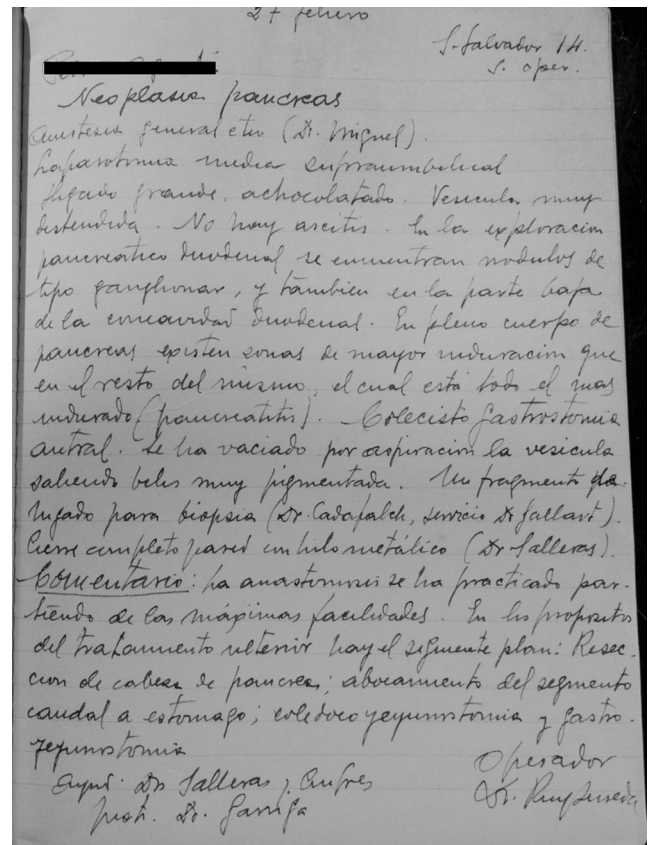 27 febrero
S. Salvador 14.
S. oper.
Neoplasia pancreas
Anestesia general eter (Dr. Miguel).
Laparotomia media supraumbilical
Higado grande, achocolatado. Vesicula muy
distendida. No hay ascitis. En la exploracion
pancreatico duodenal se encuentran nodulos de
tipo ganglionar, y tambien en la parte baja
de la concavidad duodenal. En pleno cuerpo de
pancreas existen zonas de mayor induracion que
en el resto del mismo, el cual está todo el mas
indurado (pancreatitis). Colecisto gastrostomia
antral. Se ha vaciado por aspiracion la vesicula
saliendo bilis muy pigmentada. Un fragmento
higado para biopsia (Dr. Cadafalch, servicio Dr Gallart).
Cierre completo pared con hilo metálico (Dr Salleras).
Comentario: La anastomosis se ha practicado par-
tiendo de las máximas facilidades. En los propositos
del tratamiento ulterior hay el siguiente plan: Resec-
cion de cabeza de pancreas; abocamiento del segmento
caudal a estomago; coledoco yeyunostomia y gastro-
yeyunostomia
Operador
Ayud. Drs Salleras y
Dr. Puig Sureda
Dr. Garriga